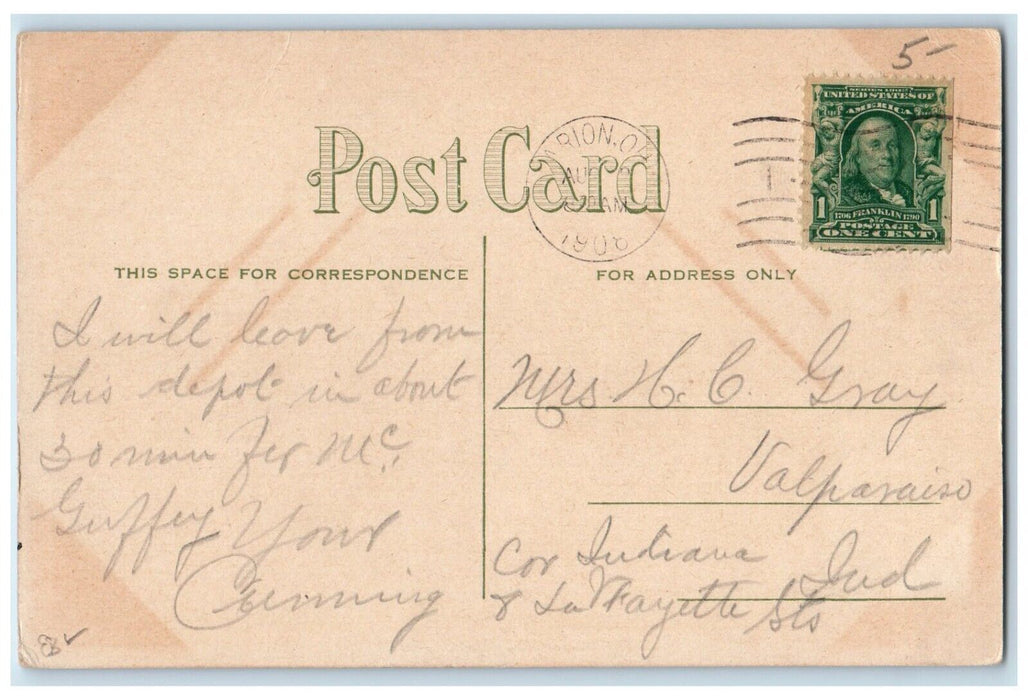 5-
SERIES 1902
UNITED STATES OF
AMERICA
1706 FRANKLIN 1790
1 1
POSTAGE
ONE CENT
Post Card
AUG
AM
THIS SPACE FOR CORRESPONDENCE
FOR ADDRESS ONLY
I will leave from
this depot in about
30 min for Mc.
Guffey Your
Mrs H. C. Gray
Valparaiso
Ind
Cor Indiana
& La Fayette Sts